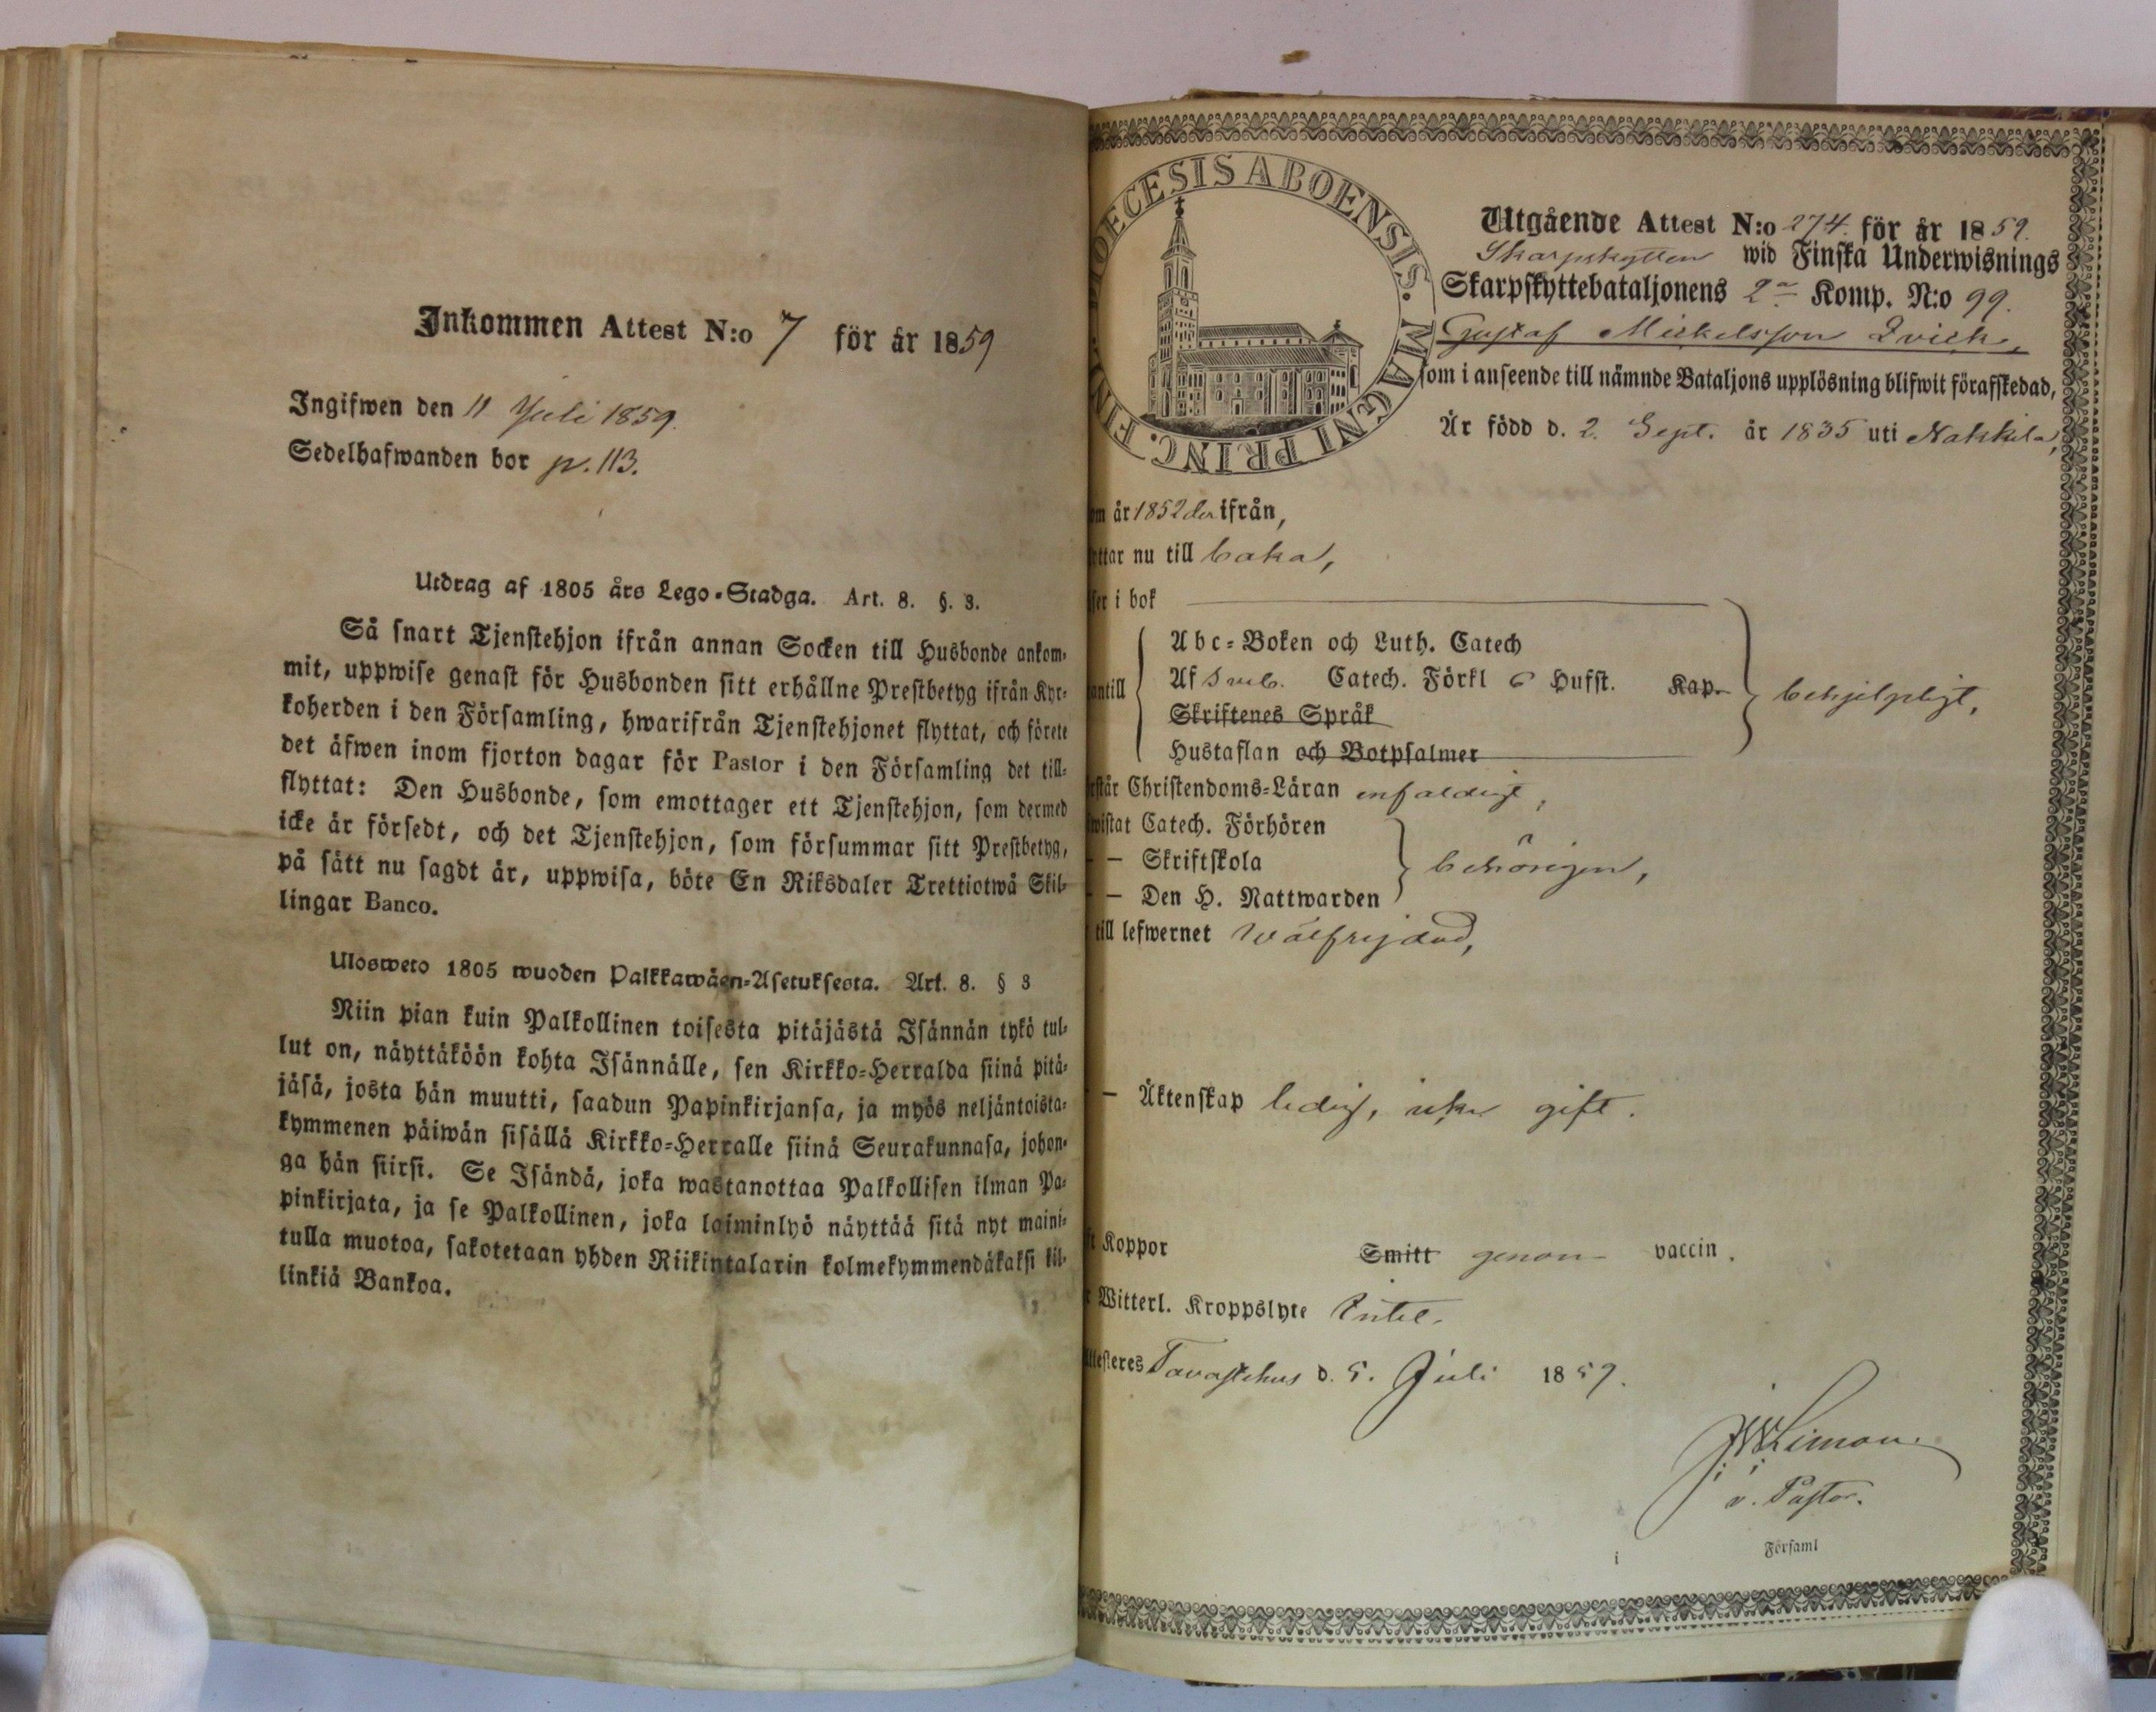 Inkommen Attest N:o 7 för år 1859
Ingifwen den 11 Juli 1859.
Sedelhafwanden bor p. 113.
Utdrag af 1805 års Lego-Stadga. Art. 8. §. 3.
Så snart Tjenstehjon ifrån annan Socken till Husbonde ankom-
mit, uppwise genast för Husbonden sitt erhållne Prestbetyg ifrån Kyr-
koherden i den Församling, hwarifrån Tjenstehjonet flyttat, och förete
det äfwen inom fjorton dagar för Pastor i den Församling det till-
flyttat: Den Husbonde, som emottager ett Tjenstehjon, som dermed
icke är försedt, och det Tjenstehjon, som försummar sitt Prestbetyg,
på sätt nu sagdt är, uppwisa, böte En Riksdaler Trettiotwå Skil-
lingar Banco.
Uloswetо 1805 wuoden Palkkawäen-Asetuksesta. Art. 8. § 3
Niin pian kuin Palkollinen toisesta pitäjästä Isännän tykö tul-
lut on, näyttäköön kohta Isännälle, sen Kirkko-Herralda siinä pitä-
jäsä, josta hän muutti, saadun Papinkirjansa, ja myös neljäntoista-
kymmenen päiwän sisällä Kirkko-Herralle siinä Seurakunnasa, johon-
ga hän siirsi. Se Isändä, joka wastanottaa Palkollisen ilman Pa-
pinkirjata, ja se Palkollinen, joka laiminlyö näyttää sitä nyt maini-
tulla muotoa, sakotetaan yhden Riikintalarin kolmekymmendäkaksi kil-
linkiä Bankoa.
DIOECESIS ABOENSIS. MAGNI PRINC. FIN
Utgående Attest N:o 274. för år 1859.
Skarpskytten wid Finska Underwisnings
Skarpskyttebataljonens 2a Komp. N:o 99.
Gustaf Mickelsson Qvick,
som i anseende till nämnde Bataljons upplösning blifwit förafskedad,
Är född d. 2. Sept. år 1835 uti Nakkila,
om år 1852 der ifrån,
yttar nu till baka,
ser i bok
antill
Abc-Boken och Luth. Catech
Af Sveb. Catech. Förkl 6 Hufst. Kap.
Skriftenes Språk
Hustaflan och Botpsalmer
behjelpligt,
rstår Christendoms-Läran enfaldigt,
wistat Catech. Förhören
— Skriftskola
— Den H. Nattwarden
behörigen,
till lefwernet Wälfrejdad,
— Äktenskap ledig, icke gift.
ft Koppor Smitt genom vaccin.
Witterl. Kroppslyte Intet.
ttesteres Tavastehus d. 5. Juli 1859.
v. Pastor.
i Församl